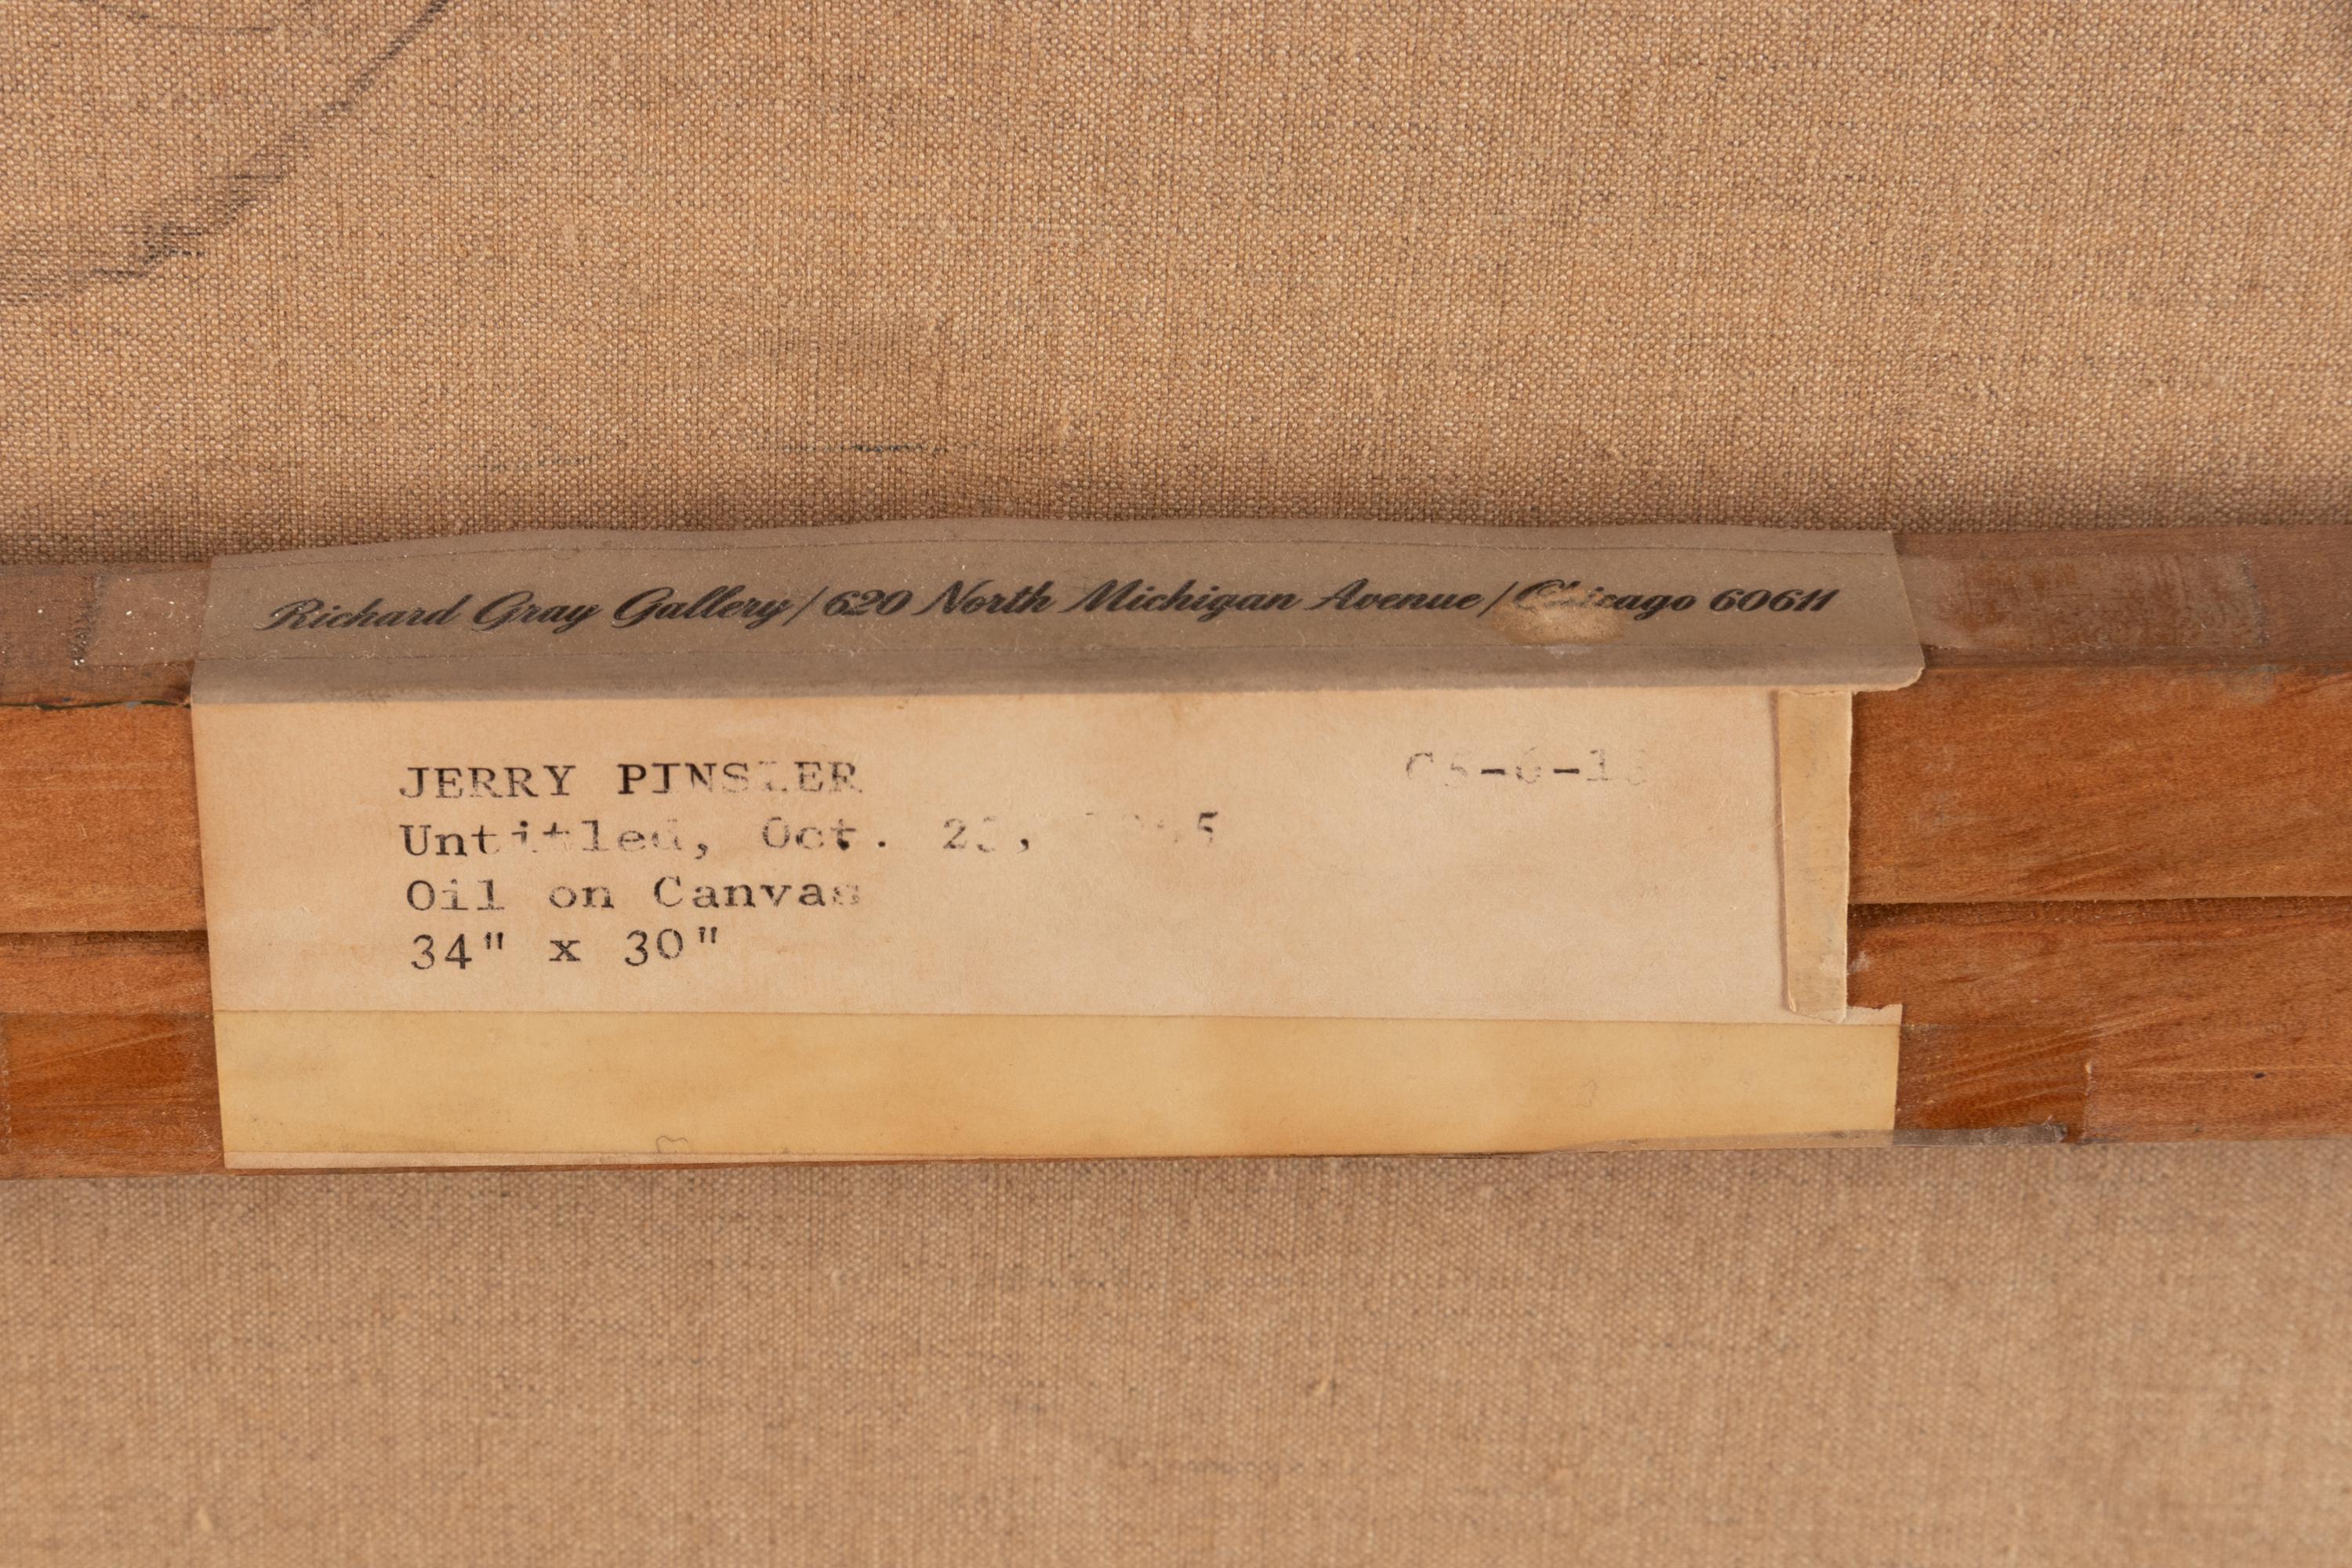 Richard Gray Gallery/620 North Michigan Avenue/Chicago 60611
JERRY PINSLER
Untitled, Oct.
Oil on Canvas
34" x 30"